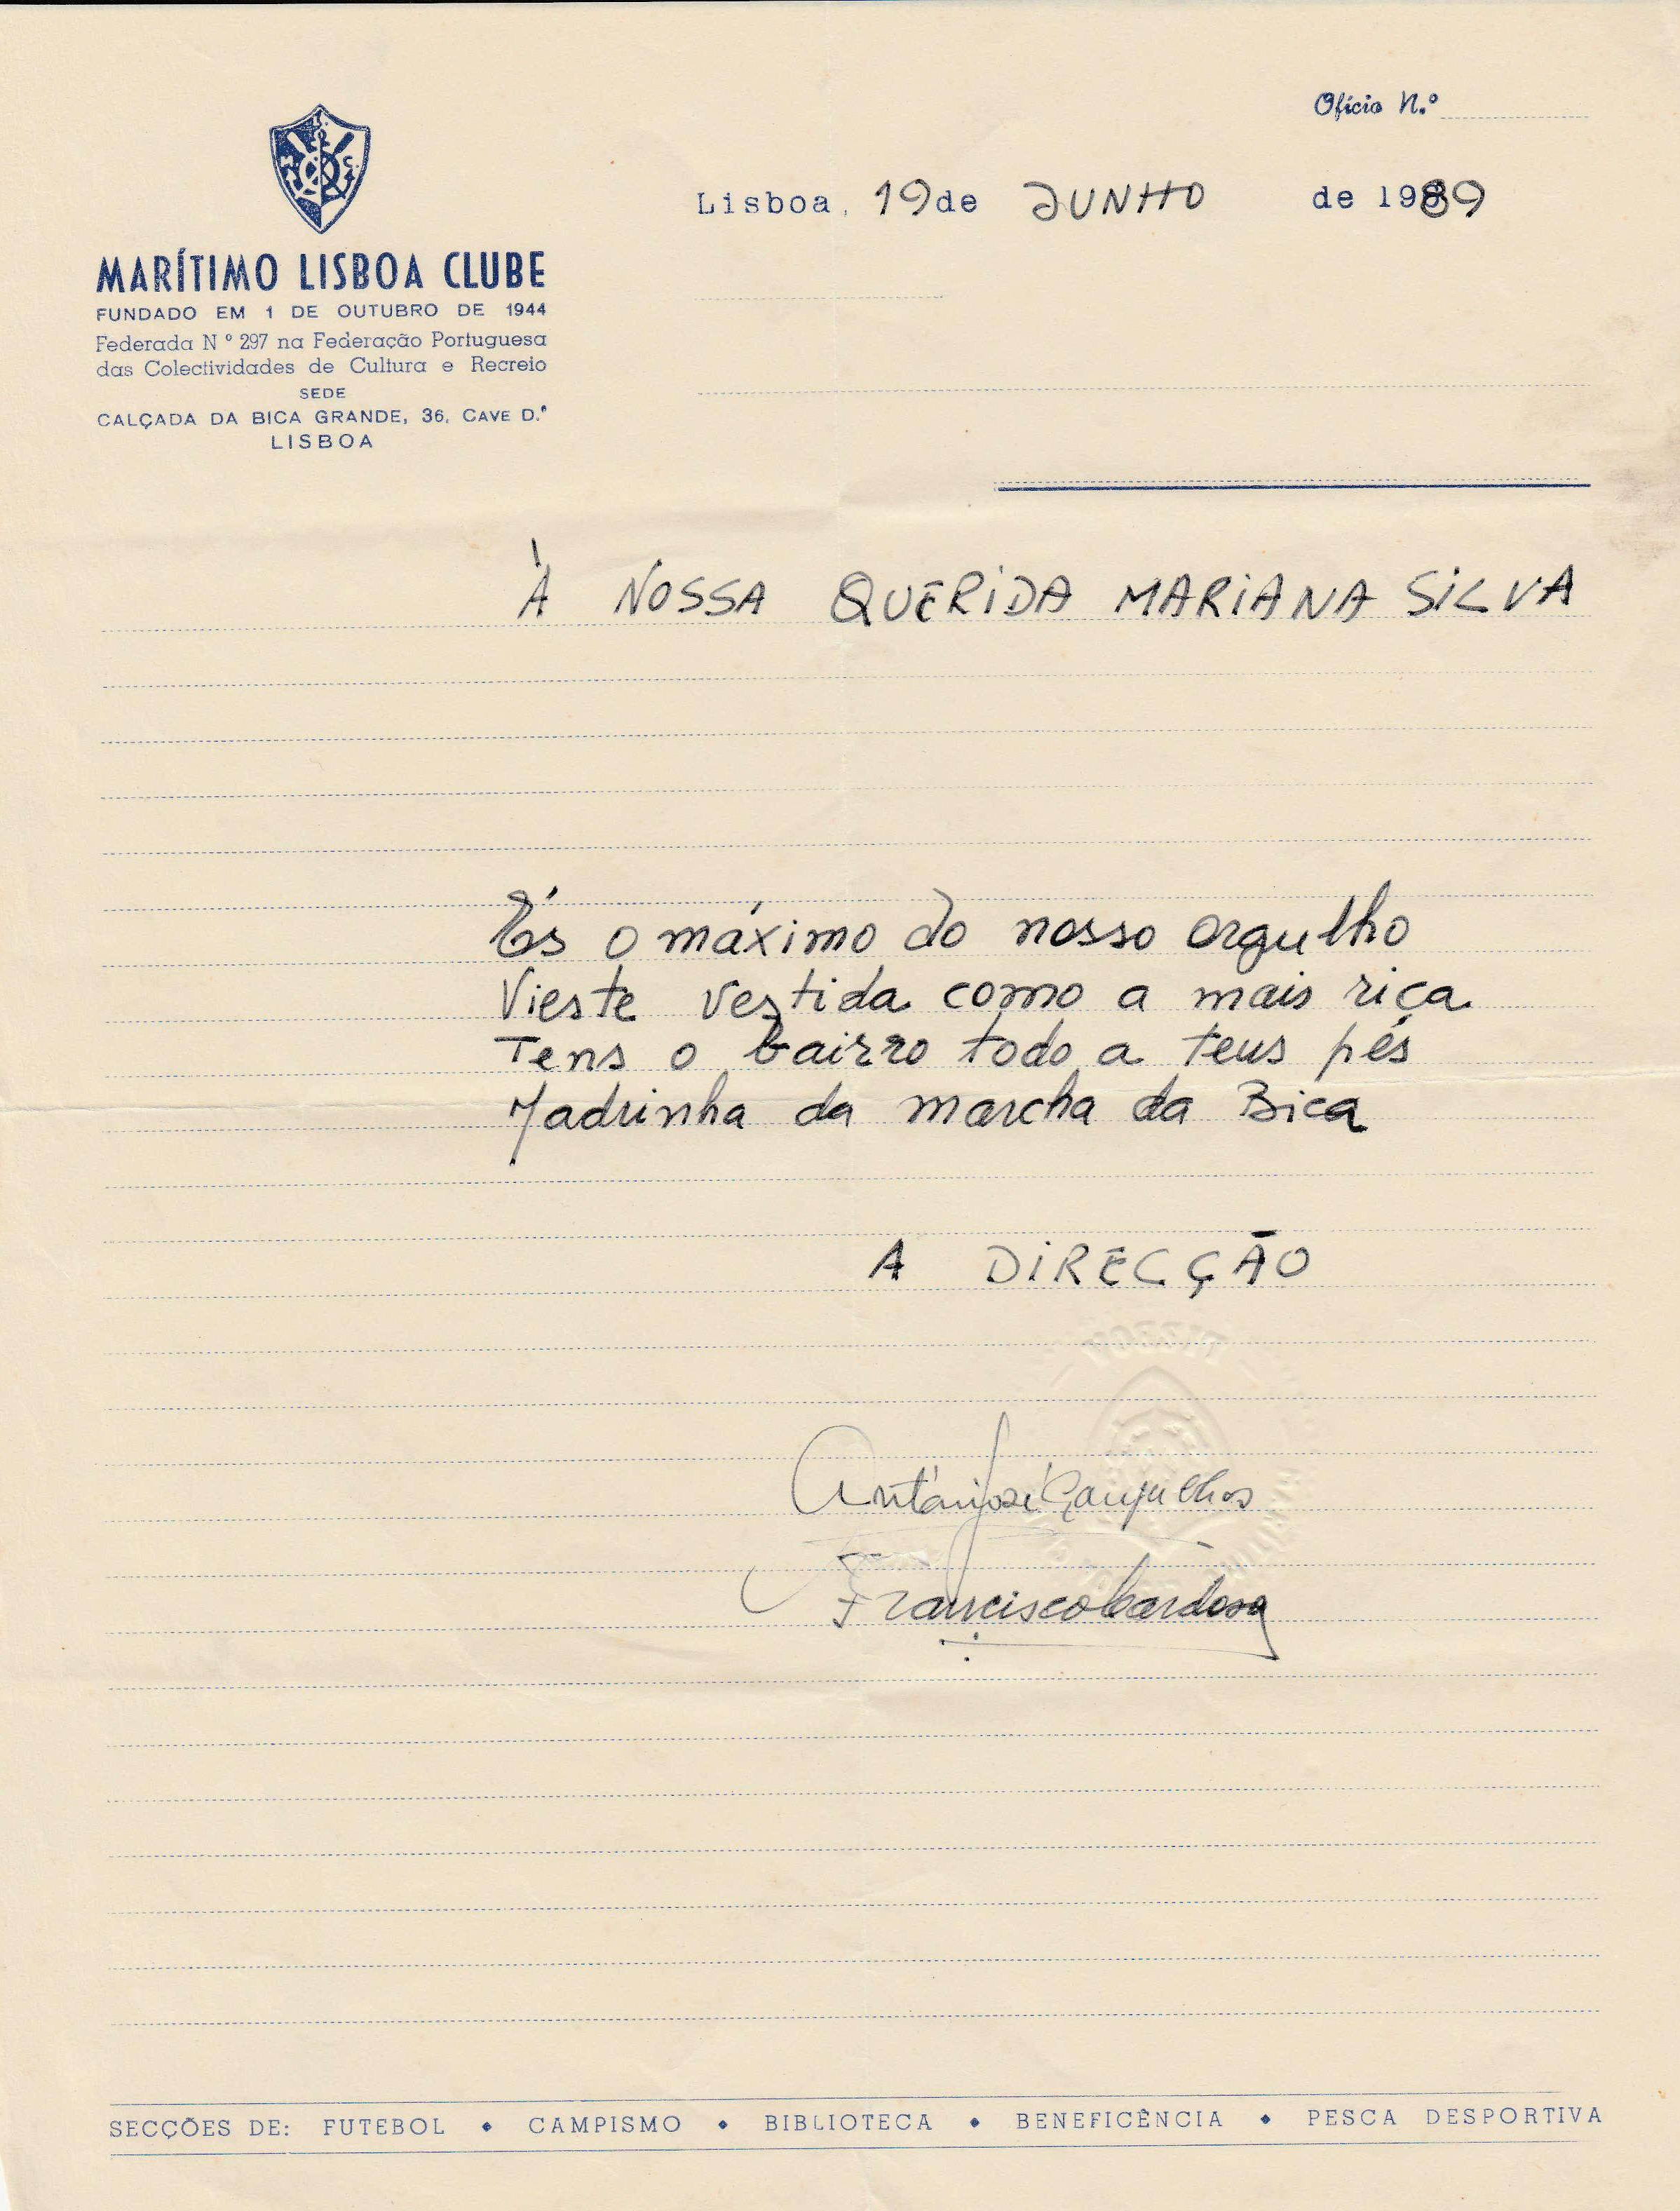 Ofício N.º
Lisboa, 19 de JUNHO de 1989
MARÍTIMO LISBOA CLUBE
FUNDADO EM 1 DE OUTUBRO DE 1944
Federada N º 297 na Federação Portuguesa
das Colectividades de Cultura e Recreio
SEDE
CALÇADA DA BICA GRANDE, 36, CAVE D.ª
LISBOA
À NOSSA QUERIDA MARIANA SILVA
És o máximo do nosso orgulho
Vieste vestida como a mais rica
Tens o bairro todo a teus pés
Madrinha da marcha da Bica
A DIRECÇÃO
António José
Francisco Cardoso
SECÇÕES DE: FUTEBOL • CAMPISMO • BIBLIOTECA • BENEFICÊNCIA • PESCA DESPORTIVA